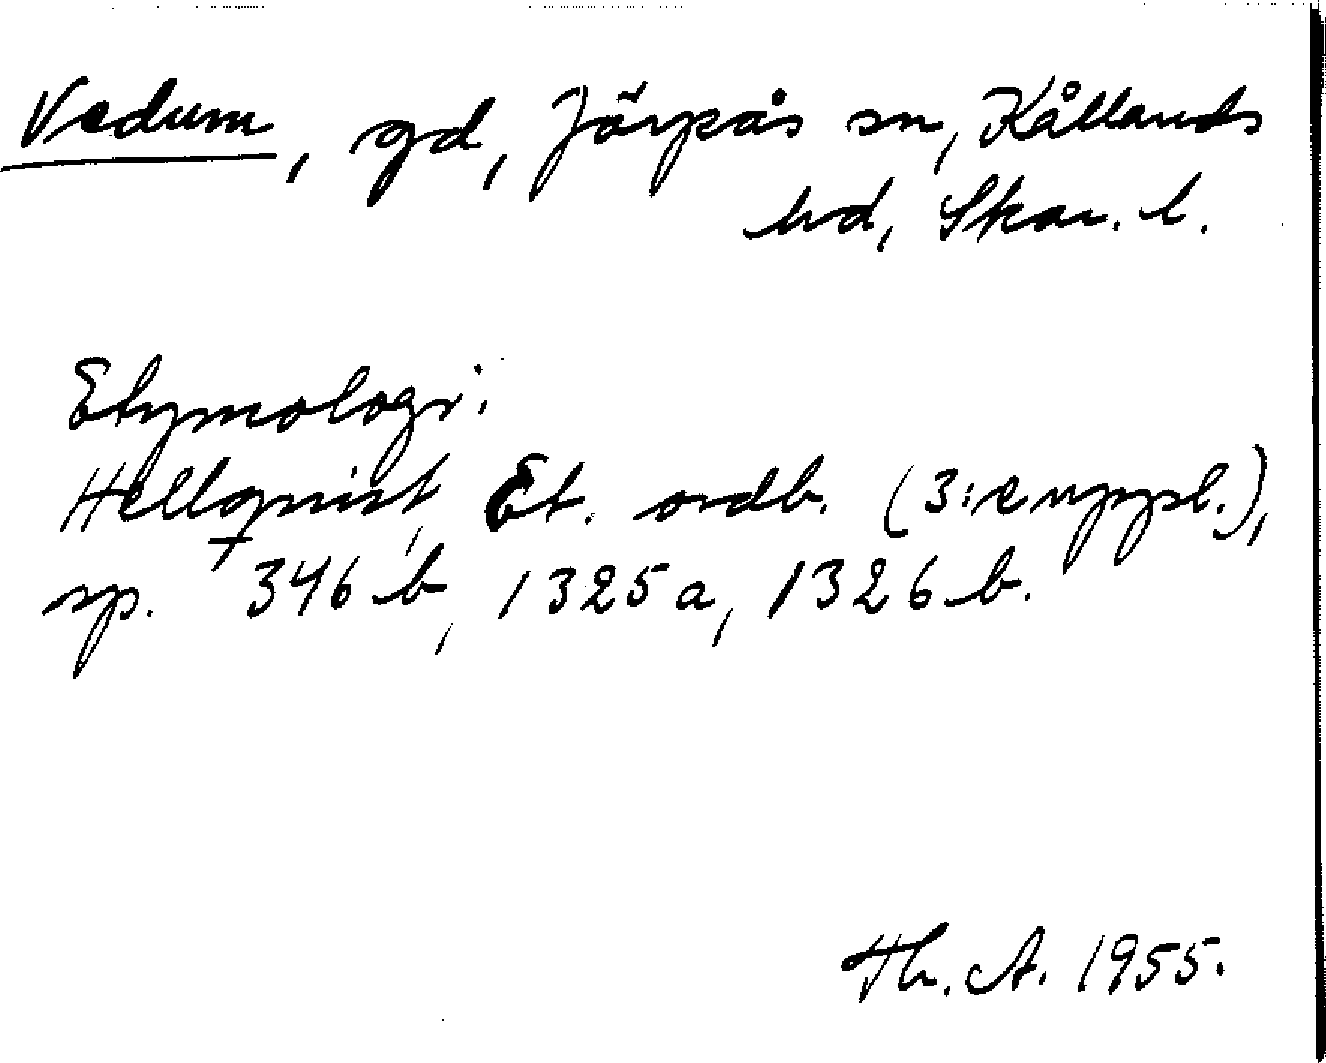 Vedum, gd, Järpås sn, Kållands
hd, Skar. l.
Etymologi:
Hellqvist, Et. ordb. (3:e uppl.),
sp. 346 b, 1325 a, 1326 b.
Th. A. 1955.